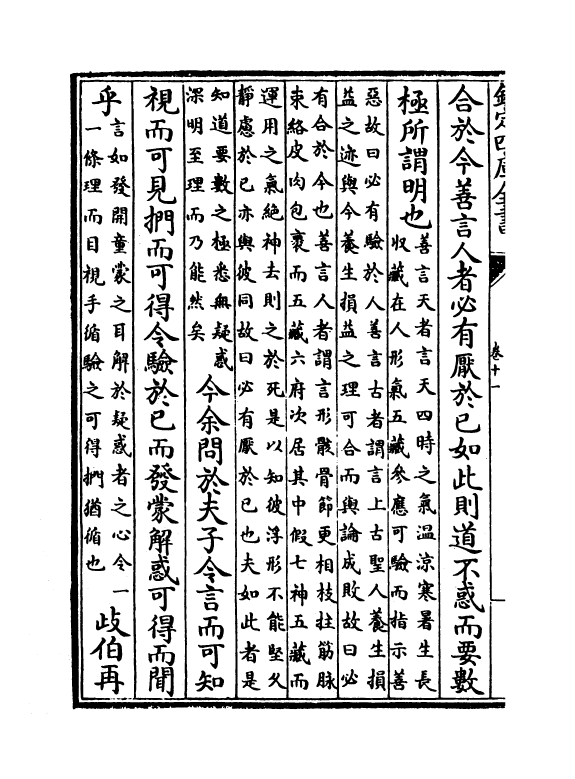 欽定四庫全書
卷十一
合於今善言人者必有厭於己如此則道不惑而要數
極所謂明也
善言天者言天四時之氣溫涼寒暑生長
收藏在人形氣五藏參應可驗而指示善
惡故曰必有驗於人善言古者謂言上古聖人養生損
益之迹與今養生損益之理可合而與論成敗故曰必
有合於今也善言人者謂言形骸骨節更相枝拄筋脉
束絡皮肉包裹而五藏六府次居其中假七神五藏而
運用之氣絶神去則之於死是以知彼浮形不能堅久
靜慮於己亦與彼同故曰必有厭於己也夫如此者是
知道要數之極悉無疑惑
深明至理而乃能然矣
今余問於夫子令言而可知
視而可見捫而可得令驗於己而發蒙解惑可得而聞
乎
言如發開童蒙之耳解於疑惑者之心令一
一條理而目視手循驗之可得捫猶循也
歧伯再